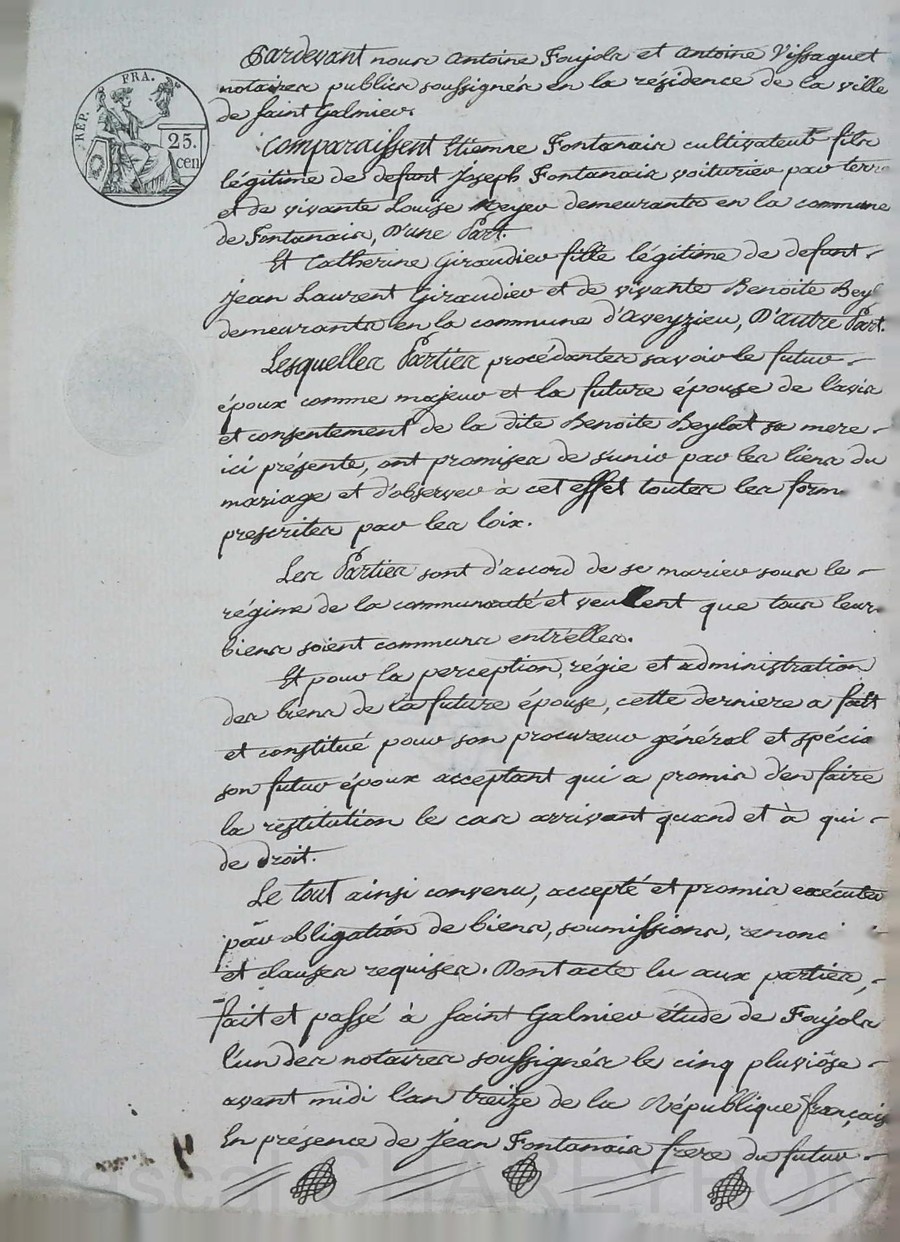 RÉP. FRA.
25.
cen
Pardevant nous Antoine Foujols et Antoine Vissaguet
notaires publics soussignés en la résidence de la ville
de Saint Galmier
Comparaissent Etienne Fontanais cultivateur fils
légitime de defunt Joseph Fontanais voiturier par terre
et de vivante Louise demeurants en la commune
de Fontanais, D'une Part.
Et Catherine Giraudier fille légitime de defunt
Jean Laurent Giraudier et de vivante Benoite Beyl
demeurants en la commune d'Aveyzieu, D'autre Part.
Lesquelles Parties procédantes savoir le futur
époux comme majeur et la future épouse de l'avis
et consentement de la dite Benoite Beylat sa mere
ici présente, ont promises de s'unir par les liens du
mariage et d'observer à cet effet toutes les form
prescrites par les loix.
Les Parties sont d'accord de se marier sous le
régime de la communauté et veullent que tous leurs
biens soient communs entr'elles.
Et pour la perception, régie et administration
des biens de la future épouse, cette derniere a fait
et constitué pour son procureur général et spécia
son futur époux acceptant qui a promis d'en faire
la restitution le cas arrivant quand et à qui
de droit.
Le tout ainsi convenu, accepté et promis exécuter
par obligation de biens, soumissions, renonci
et clauses requises. Dont acte lu aux parties,
fait et passé à Saint Galmier étude de Foujols
l'un des notaires soussignés le cinq pluviôse
avant midi l'an treize de la République français
En présence de Jean Fontanais frere du futur
Pascal CHAREYRON